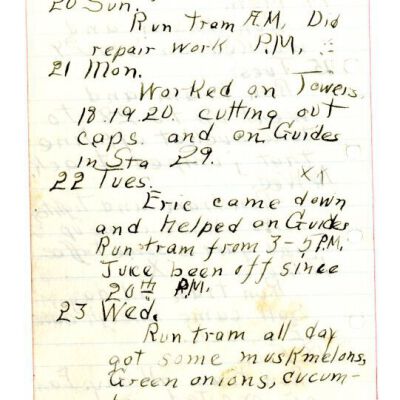 20 Sun.
Run tram A.M. Did
repair work P.M.
21 Mon.
Worked on Towers
18.19.20. cutting out
caps. and on Guides
in Sta 29.
22 Tues.
Eric came down
and Helped on Guides
Run tram from 3-5 P.M.
Juice been off since
20th P.M.
23 Wed.
Run tram all day
got some muskmelons,
Green onions, cucum-